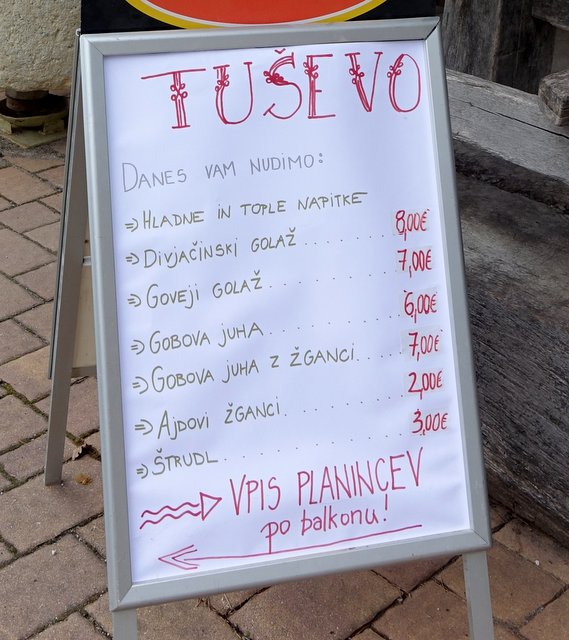 TUŠEVO
DANES VAM NUDIMO:
⇒ HLADNE IN TOPLE NAPITKE
⇒ DIVJAČINSKI GOLAŽ ........ 8,00€
⇒ GOVEJI GOLAŽ ........ 7,00€
⇒ GOBOVA JUHA ........ 6,00€
⇒ GOBOVA JUHA Z ŽGANCI .... 7,00€
⇒ AJDOVI ŽGANCI ........ 2,00€
⇒ ŠTRUDL ........ 3,00€
VPIS PLANINCEV
po balkonu!